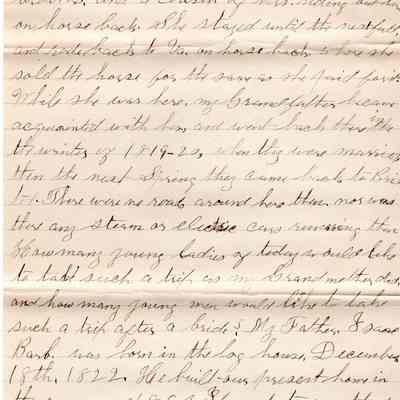 a cousin of Mrs. riding out here
on horse back. She stayed until the next fall,
and rode back to Va. on horse back where she
sold the horse for the same as she paid for it.
While she was here, my Grandfather became
acquainted with her and went back there
the winter of 1819-20, when they were married
then the next Spring they came back to Bris
tol. There were no roads around here then, nor was
there any steam or electric cars running then
How many young ladies of today would like
to take such a trip as my Grandmother did,
and how many young men would like to take
such a trip after a bride? My Father, Isaac
Barb. was born in the log house, December
18th, 1822. He built our present home in